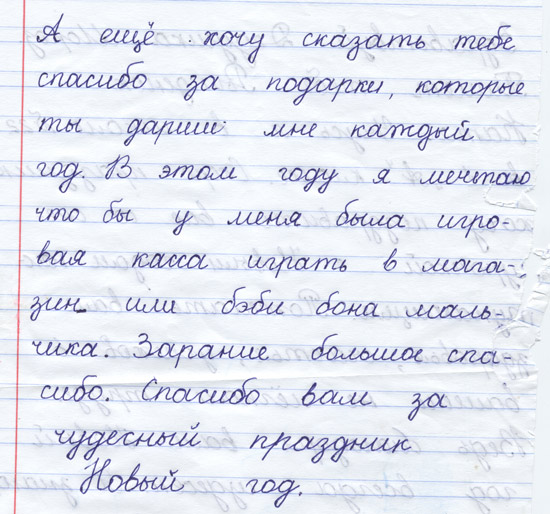 А ещё хочу сказать тебе
спасибо за подарки, которые
ты дариш мне каждый
год. В этом году я мечтаю
что бы у меня была игро-
вая касса играть в мага-
зин или бэби бона маль-
чика. Зарание большое спа-
сибо. Спасибо вам за
чудесный праздник
Новый год.